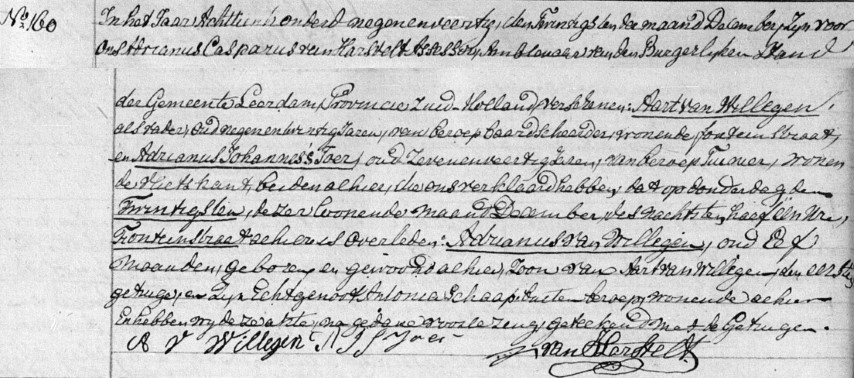 No 160
In het Jaar Achttienhonderd negenenveertig, den Twintigsten der maand December, zyn voor
Ons Adrianus Casparus van Harstelt Assessor, Ambtenaar van den Burgerlyken Stand
der Gemeente Leerdam, Provincie Zuid-Holland, verschenen: Aart van Willegen,
als vader, oud negenentwintig Jaren, van beroep baardscheerder, wonende fonteinstraat,
en Adrianus Johannes Toer, oud zevenenveertig Jaren, van beroep wonen
de vlietskant, beiden alhier, die ons verklaard hebben, dat op donderdag den
Twintigsten, dezer loopende maand December, des nachts ten half één Ure,
Fonteinstraat alhier is Overleden: Adrianus van Willegen, oud Elf
maanden, geboren en gewoond alhier, Zoon van Aart van Willegen, den eersten
getuige, en zyn Echtgenoot Antonia Schaap buiten beroep, wonende alhier
En hebben wy deze akte, na gedane voorlezing, geteekend met de Getuigen.
A V Willegen A J Toer van Harstelt